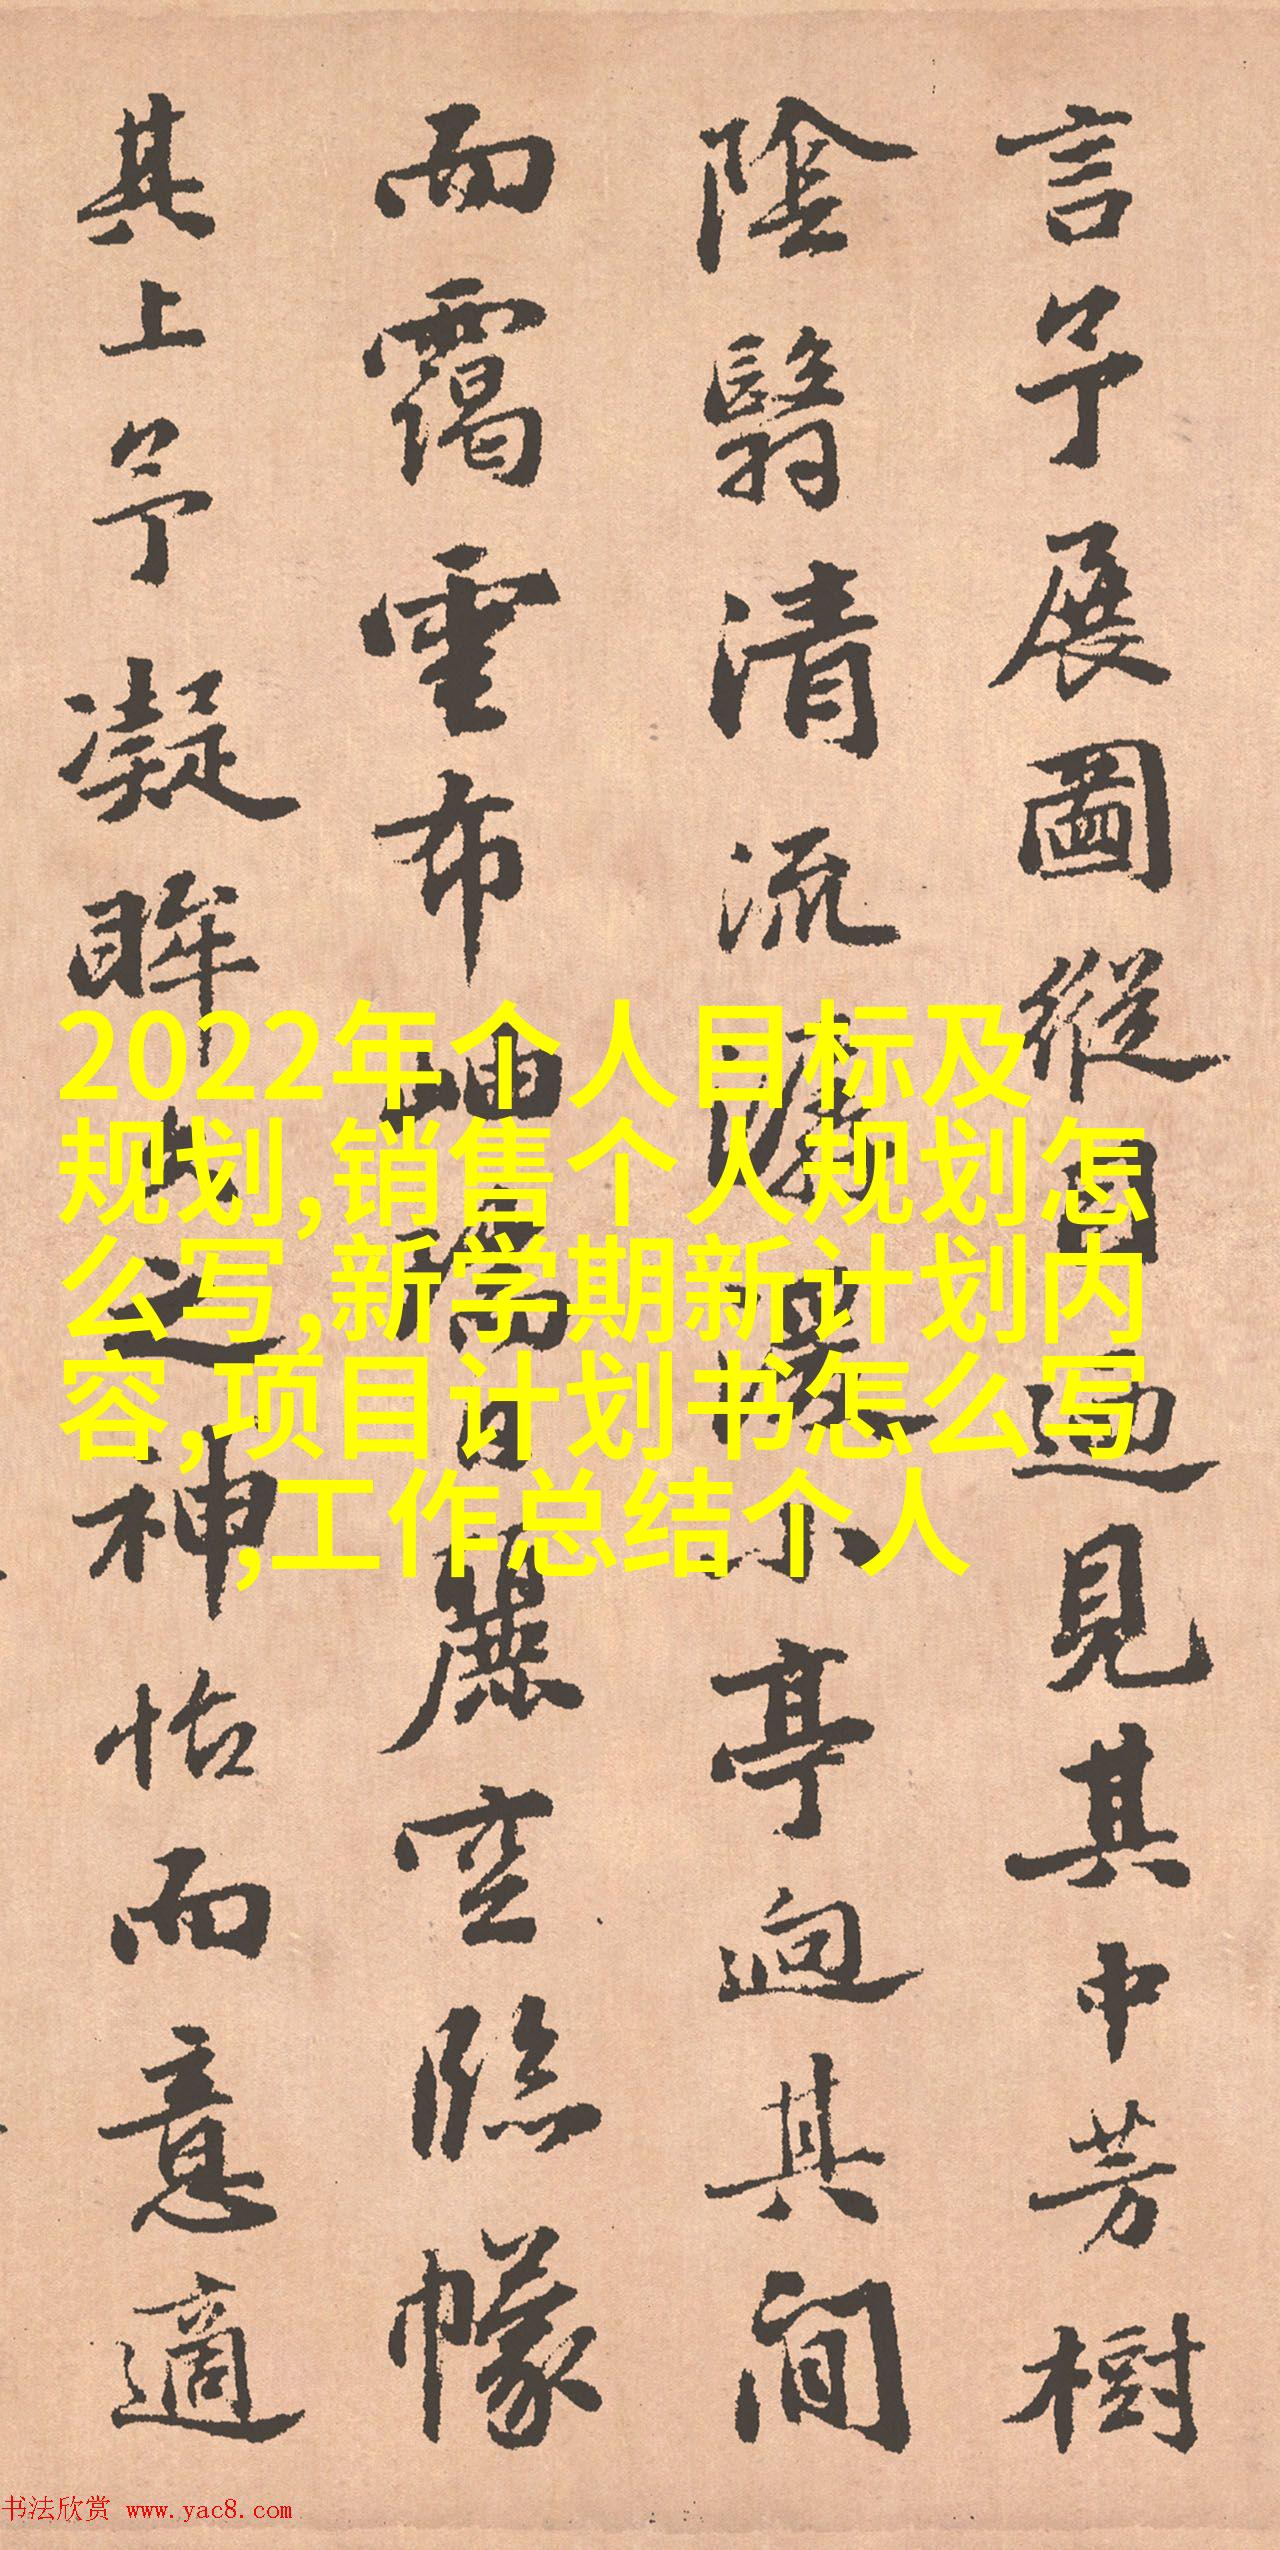 言予展圖縱目見其中芳樹
陰翳清流小亭迥其間
而靄雲布日麗空臨幪
其上予凝眸之神怡而意適
2022年个人目标及
规划,销售个人规划怎
么写,新学期新计划内
容,项目计划书怎么写
,工作总结个人
书法欣赏 www.yac8.com